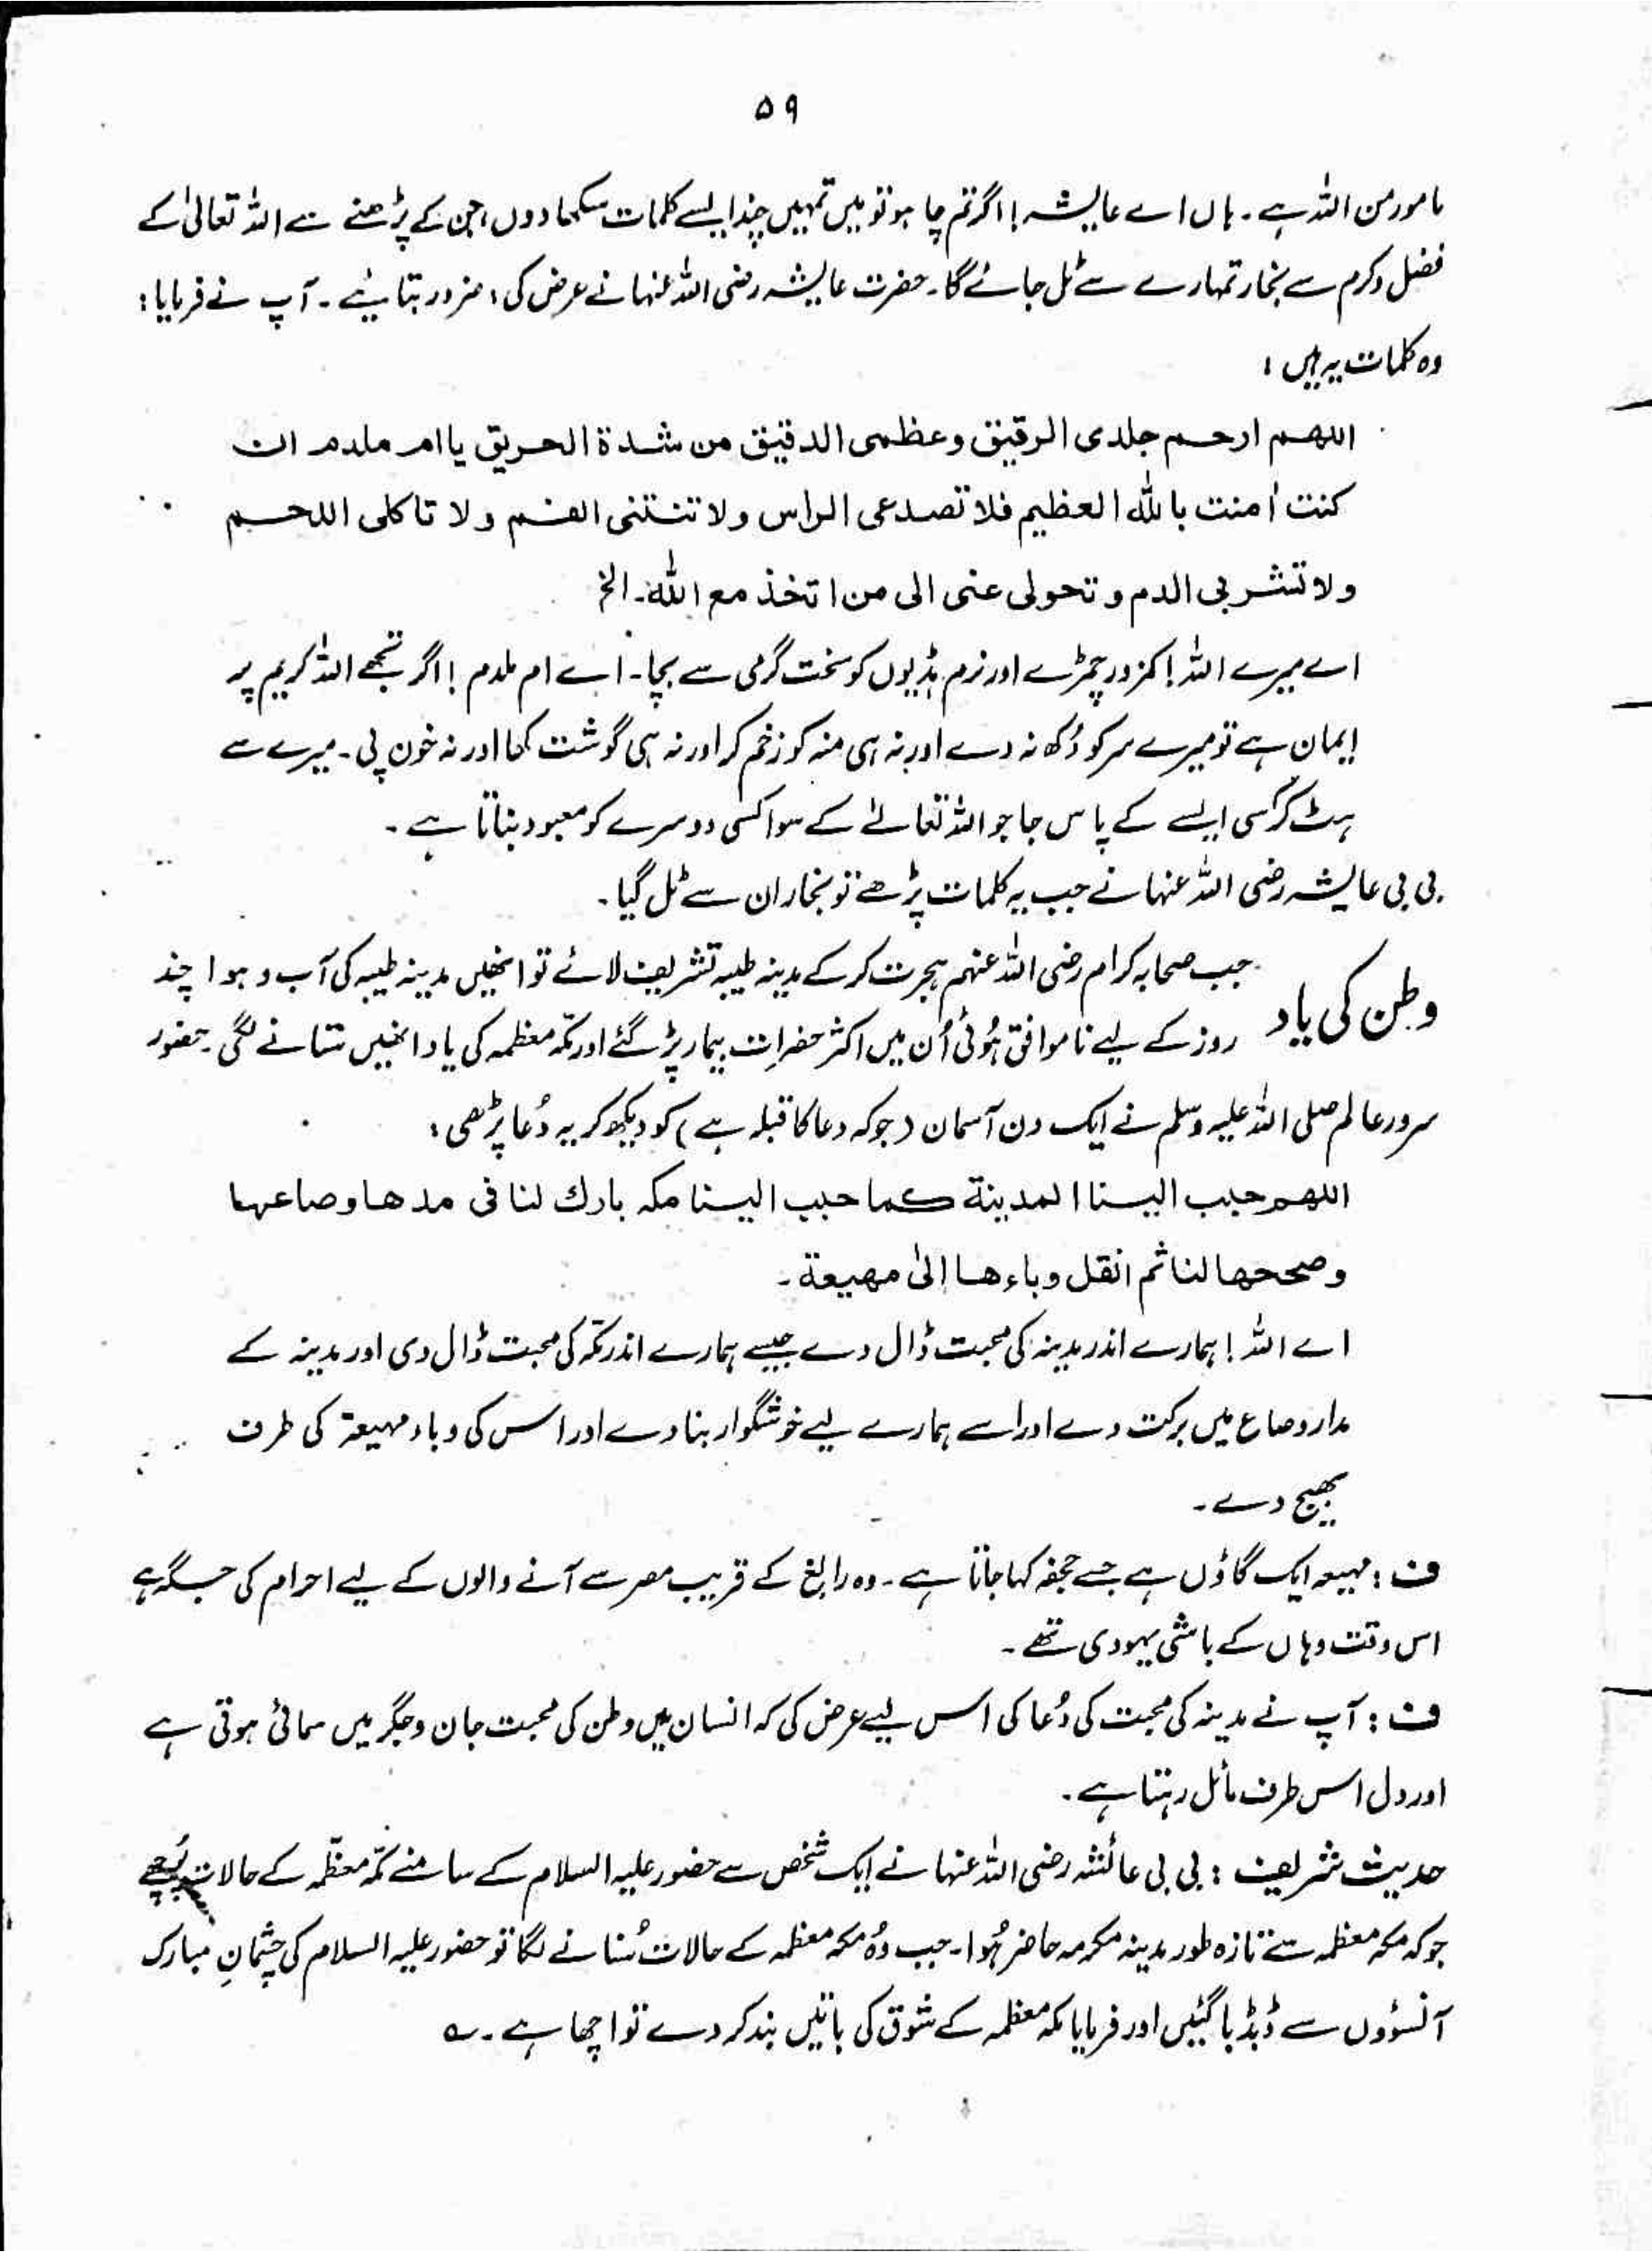 ۵۹
مامور من اللہ ہے۔ ہاں اے عایشہ! اگر تم چاہو تو میں تمہیں چند ایسے کلمات سکھا دوں، جن کے پڑھنے سے اللہ تعالیٰ کے
فضل و کرم سے بخار تمہارے سے ٹل جائے گا۔ حضرت عایشہ رضی اللہ عنہا نے عرض کی، ضرور بتائیے۔ آپ نے فرمایا:
وہ کلمات یہ ہیں:
اللھم ارحم جلدی الرقیق وعظمی الدقیق من شدۃ الحریق یا ام ملدم ان
کنت اٰمنت باللہ العظیم فلا تصدعی الراس ولا تنتنی الفم ولا تاکلی اللحم
ولا تشربی الدم و تحولی عنی الی من اتخذ مع اللہ۔ الخ
اے میرے اللہ! کمزور چمڑے اور نرم ہڈیوں کو سخت گرمی سے بچا۔ اے ام ملدم! اگر تجھے اللہ کریم پر
ایمان ہے تو میرے سر کو دُکھ نہ دے اور نہ ہی منہ کو زخم کر اور نہ ہی گوشت کھا اور نہ خون پی۔ میرے سے
ہٹ کر کسی ایسے کے پاس جا جو اللہ تعالےٰ کے سوا کسی دوسرے کو معبود بناتا ہے۔
بی بی عایشہ رضی اللہ عنہا نے جب یہ کلمات پڑھے تو بخار ان سے ٹل گیا۔
وطن کی یاد جب صحابہ کرام رضی اللہ عنہم ہجرت کر کے مدینہ طیبہ تشریف لائے تو انھیں مدینہ طیبہ کی آب و ہوا چند
روز کے لیے ناموافق ہُوئی اُن میں اکثر حضرات بیمار پڑ گئے اور مکّہ معظمہ کی یاد انھیں ستانے لگی۔ حضور
سرور عالم صلی اللہ علیہ وسلم نے ایک دن آسمان (جو کہ دعا کا قبلہ ہے) کو دیکھ کر یہ دُعا پڑھی:
اللھم حبب الینا المدینۃ کما حبب الینا مکہ بارك لنا فی مدھا وصاعھا
وصححھا لنا ثم انقل وباءھا الیٰ مھیعۃ۔
اے اللہ! ہمارے اندر مدینہ کی محبت ڈال دے جیسے ہمارے اندر مکّہ کی محبت ڈال دی اور مدینہ کے
مدار وصاع میں برکت دے اور اسے ہمارے لیے خوشگوار بنا دے اور اس کی وباء مہیعۃ کی طرف
بھیج دے۔
ف: مہیعہ ایک گاؤں ہے جسے جحفہ کہا جاتا ہے۔ وہ رابغ کے قریب مصر سے آنے والوں کے لیے احرام کی جگہ ہے
اس وقت وہاں کے باشی یہودی تھے۔
ف: آپ نے مدینہ کی محبت کی دُعا کی اس لیے عرض کی کہ انسان میں وطن کی محبت جان و جگر میں سمائی ہوتی ہے
اور دل اس طرف مائل رہتا ہے۔
حدیث شریف: بی بی عائشہ رضی اللہ عنہا نے ایک شخص سے حضور علیہ السلام کے سامنے مکّہ معظّمہ کے حالات پُوچھے
جو کہ مکہ معظمہ سے تازہ طور مدینہ مکرمہ حاضر ہُوا۔ جب وُہ مکہ معظمہ کے حالات سُنانے لگا تو حضور علیہ السلام کی چشمانِ مبارک
آنسوؤں سے ڈبڈبا گئیں اور فرمایا مکہ معظمہ کے شوق کی باتیں بند کر دے تو اچھا ہے۔ ؎